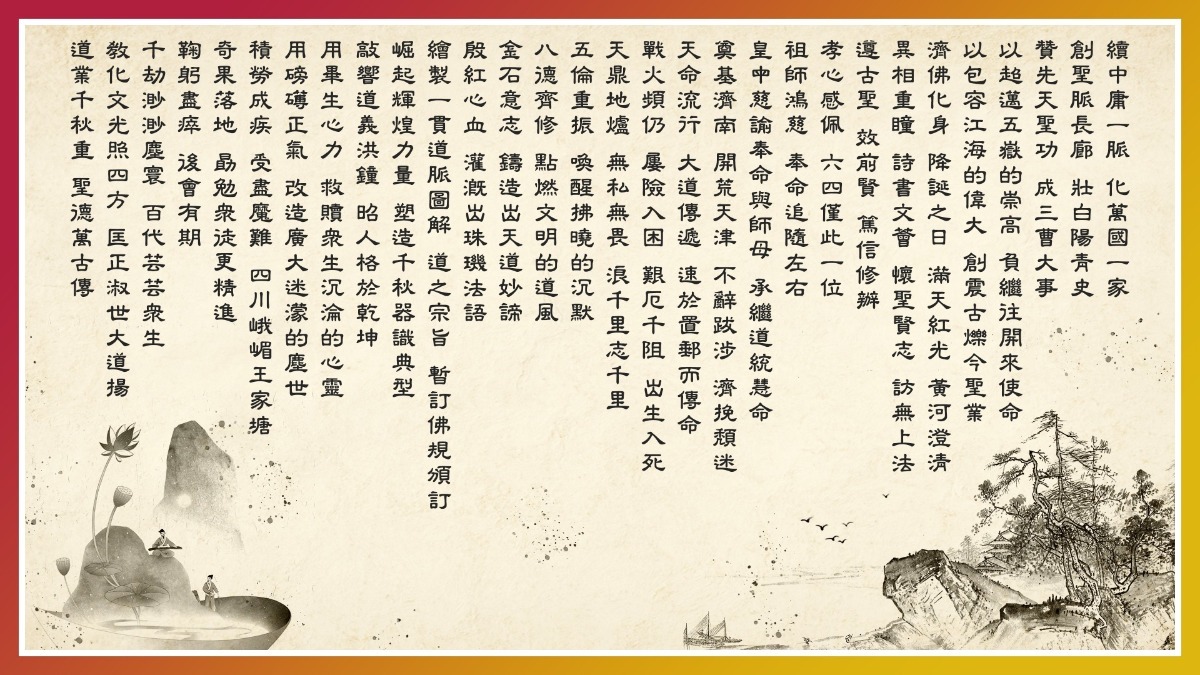 續中庸一脈 化萬國一家
創聖脈長廊 壯白陽青史
贊先天聖功 成三曹大事
以超邁五嶽的崇高 負繼往開來使命
以包容江海的偉大 創震古爍今聖業
濟佛化身 降誕之日 滿天紅光 黃河澄清
異相重瞳 詩書文薈 懷聖賢志 訪無上法
遵古聖 效前賢 篤信修辦
孝心感佩 六四僅此一位
祖師鴻慈 奉命追隨左右
皇中慈諭奉命與師母 承繼道統慧命
奠基濟南 開荒天津 不辭跋涉 濟挽頹迷
天命流行 大道傳遞 速於置郵而傳命
戰火頻仍 屢險入困 艱厄千阻 出生入死
天鼎地爐 無私無畏 浪千里志千里
五倫重振 喚醒拂曉的沉默
八德齊修 點燃文明的道風
金石意志 鑄造出天道妙諦
殷紅心血 灌溉出珠璣法語
繪製一貫道脈圖解 道之宗旨 暫訂佛規頒訂
崛起輝煌力量 塑造千秋器識典型
敲響道義洪鐘 昭人格於乾坤
用畢生心力 救贖眾生沉淪的心靈
用磅礡正氣 改造廣大迷濛的塵世
積勞成疾 受盡魔難 四川峨嵋王家塘
奇果落地 勗勉眾徒更精進
鞠躬盡瘁 後會有期
千劫渺渺塵寰 百代芸芸眾生
教化文光照四方 匡正淑世大道揚
道業千秋重 聖德萬古傳